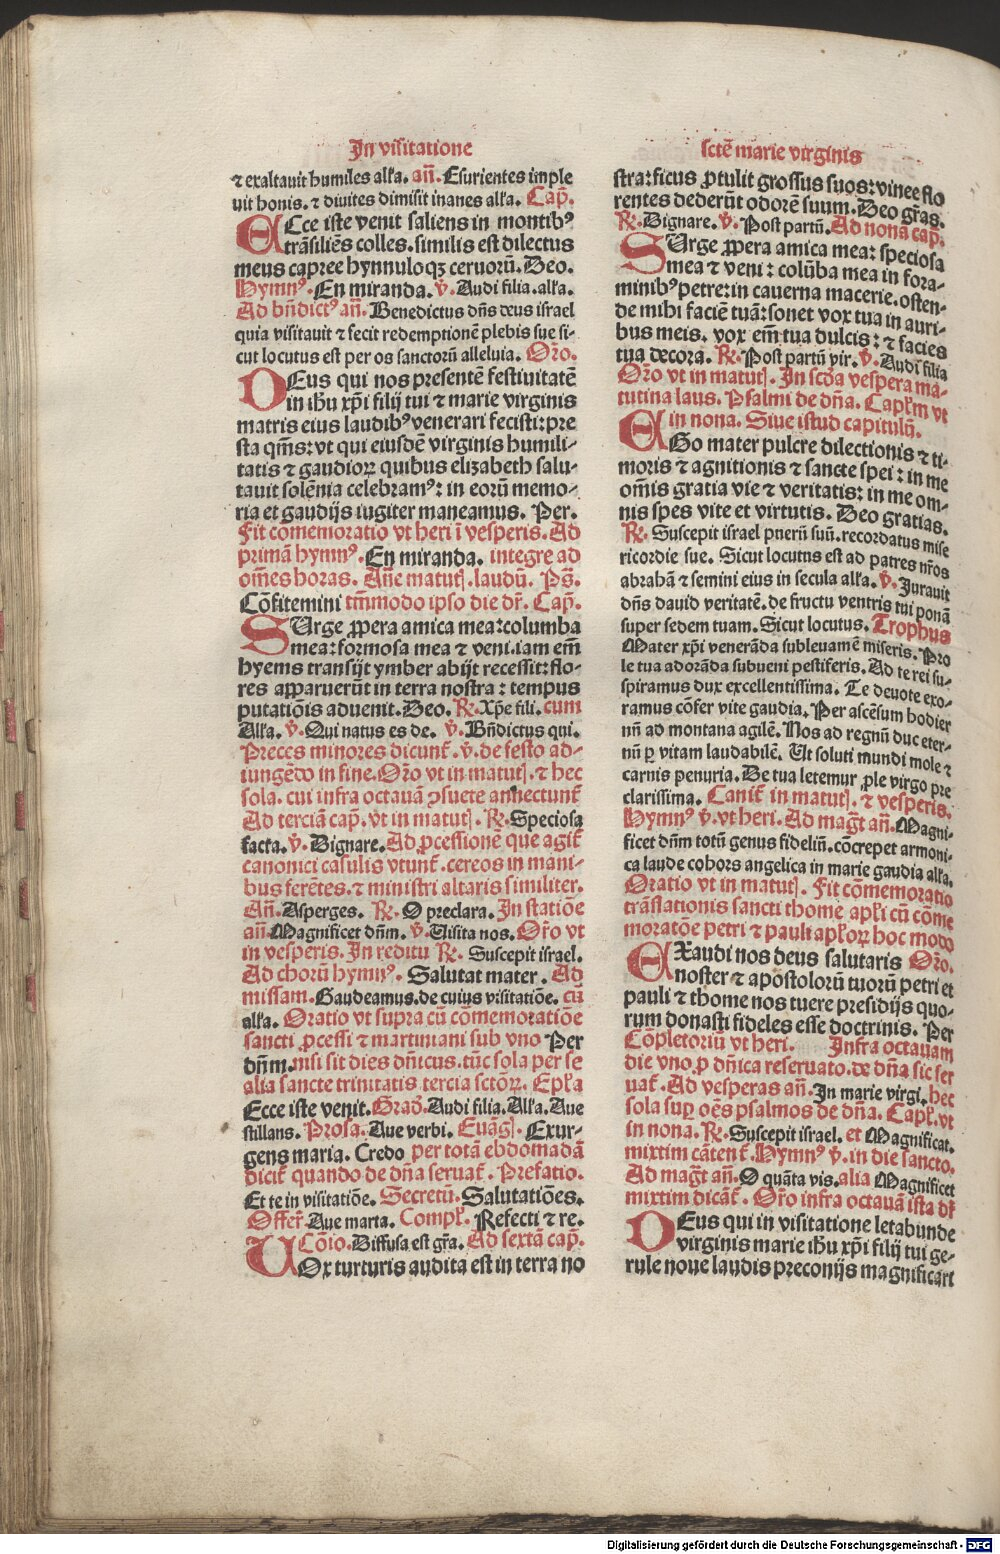 In visitatione
⁊ exaltauit humiles alľa. añ. Esurientes imple
uit bonis. ⁊ diuites dimisit inanes alľa. Cap̃.
ECce iste venit saliens in montibꝰ
trãsiliẽs colles. similis est dilectus
meus capree hynnuloqꝫ ceruorũ. Deo.
Hymnꝰ. En miranda. v̾. Audi filia. alľa.
Ad bñdictꝰ añ. Benedictus dñs deus israel
quia visitauit ⁊ fecit redemptionẽ plebis sue si-
cut locutus est per os sanctorũ alleluia. Oro.
DEus qui nos presentẽ festiuitatẽ
in ihu xp̃i filij tui ⁊ marie virginis
matris eius laudibꝰ venerari fecisti: pre
sta qm̃s: vt qui eiusdẽ virginis humili-
tatis ⁊ gaudioꝝ quibus elizabeth salu-
tauit solẽnia celebramꝰ: in eorũ memo-
ria et gaudijs iugiter maneamus. Per.
Fit comemoratio vt heri ĩ vesperis. Ad
primã hymnꝰ. En miranda. integre ad
om̃es horas. Añe matutꝭ. laudũ. Pš.
Cõfitemini tm̃modo ipso die dr̃. Cap̃.
SUrge ꝓpera amica mea: columba
mea: formosa mea ⁊ veni. iam em̃
hyems transijt ymber abijt recessit: flo-
res apparuerũt in terra nostra: tempus
putatiõis aduenit. Deo. ℟. Xp̃e fili. cum
Alľa. v̾. Qui natus es de. v̾. Bñdictus qui.
Preces minores dicunť. v̾. de festo ad-
iungẽdo in fine. Oro vt in matutꝭ. ⁊ hec
sola. cui infra octauã ꝯsuete annectunť
Ad terciã cap̃. vt in matutꝭ. ℟. Speciosa
facta. v̾. Dignare. Ad ꝓcessionẽ que agiť
canonici casulis vtunť. cereos in mani-
bus ferẽtes. ⁊ ministri altaris similiter.
Añ. Asperges. ℟. O preclara. In statiõe
añ. Magnificet dñm. v̾. Uisita nos. Oro vt
in vesperis. In reditu ℟. Suscepit israel.
Ad chorũ hymnꝰ. Salutat mater. Ad
missam. Gaudeamus. de cuius visitatiõe. cũ
alľa. Oratio vt supra cũ cõmemoratiõe
sancti ꝓcessi ⁊ martiniani sub vno Per
dñm. nisi sit dies dñicus. tũc sola per se
alia sancte trinitatis tercia sctõꝝ. Epľa
Ecce iste venit. Grad̃. Audi filia. Alľa. Aue
stillans. Prosa. Aue verbi. Euãgꝭ. Exur-
gens maria. Credo per totã ebdomadã
diciť quando de dña seruať. Prefatio.
Et te in visitatiõe. Secretũ. Salutatiões.
Offer̃. Aue maria. Compľ. Refecti ⁊ re.
Cõio. Diffusa est gr̃a. Ad sextã cap̃.
UOx turturis audita est in terra no
sctẽ marie virginis
stra: ficus ꝓtulit grossus suos: vinee flo
rentes dederũt odorẽ suum. Deo gr̃as.
℟. Dignare. v̾. Post partũ. Ad nonã cap̃.
SUrge ꝓpera amica mea: speciosa
mea ⁊ veni: colũba mea in fora-
minibꝰ petre: in cauerna macerie. osten-
de mihi faciẽ tuã: sonet vox tua in auri-
bus meis. vox em̃ tua dulcis: ⁊ facies
tua decora. ℟. Post partũ vir. v̾. Audi filia
Oro vt in matutꝭ. In scd̃a vespera ma-
tutina laus. Psalmi de dña. Capľm vt
in nona. Siue istud capitulũ.
EGo mater pulcre dilectionis ⁊ ti-
moris ⁊ agnitionis ⁊ sancte spei: in me
om̃is gratia vie ⁊ veritatis: in me om-
nis spes vite et virtutis. Deo gratias.
℟. Suscepit israel puerũ suũ. recordatus mise
ricordie sue. Sicut locutus est ad patres nr̃os
abrahã ⁊ semini eius in secula alľa. v̾. Jurauit
dñs dauid veritatẽ. de fructu ventris tui ponã
super sedem tuam. Sicut locutus. Trophus
Mater xp̃i venerãda subleuamẽ miseris. Pro
le tua adorãda subueni pestiferis. Ad te rei su-
spiramus dux excellentissima. Te deuote exo-
ramus cõfer vite gaudia. Per ascẽsum hodier
nũ ad montana agilẽ. Nos ad regnũ duc eter-
nũ ꝑ vitam laudabilẽ. Ut soluti mundi mole ⁊
carnis penuria. De tua letemur ꝓle virgo pre
clarissima. Caniť in matutꝭ. ⁊ vesperis.
Hymnꝰ v̾. vt heri. Ad magt̃ añ. Magni-
ficet dñm totũ genus fideliũ. cõcrepet armoni-
ca laude cohors angelica in marie gaudia alľa.
Oratio vt in matutꝭ. Fit cõmemoratio
trãslationis sancti thome apľi cũ cõme
moratõe petri ⁊ pauli apľoꝝ hoc modo
EXaudi nos deus salutaris Oro.
noster ⁊ apostolorũ tuorũ petri et
pauli ⁊ thome nos tuere presidijs quo-
rum donasti fideles esse doctrinis. Per
Cõpletoriũ vt heri. Infra octauam
die vno ꝑ dñica reseruato. de dña sic ser
uať. Ad vesperas añ. In marie virgi. hec
sola suꝑ oẽs psalmos de dña. Capľ. vt
in nona. ℟. Suscepit israel. et Magnificat.
mixtim cãtenť. Hymnꝰ v̾. in die sancto.
Ad magt̃ añ. O quãta vis. alia Magnificet
mixtim dicãť. Oro infra octauã ista dr̃
DEus qui in visitatione letabunde
virginis marie ihu xp̃i filij tui ge-
rule noue laudis preconijs magnificari
Digitalisierung gefördert durch die Deutsche Forschungsgemeinschaft - DFG